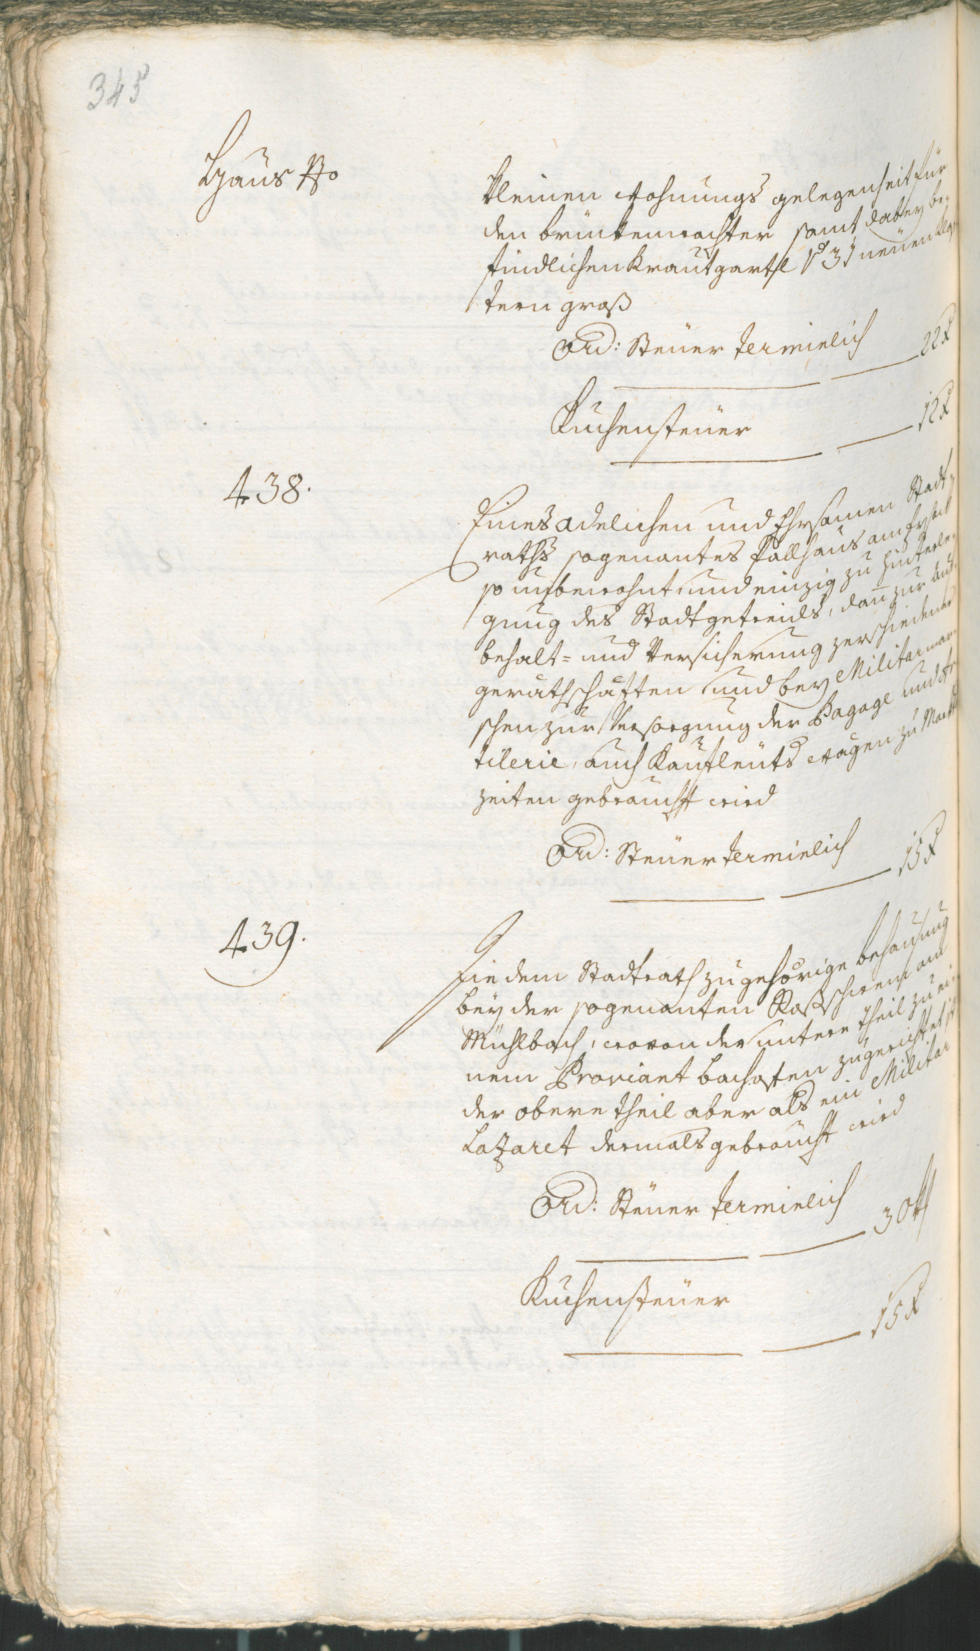 345
Haus No
kleinen Wohnungs gelegenheit für
den bruckenwachter samt darbey be-
findlichen Krautgartl 31 neuen Klaf-
tern gross
Ord: Steüer Terminlich 22 x
Kuchensteüer 12 x
438.
Eines Adelichen und Ehrsamen Stadt-
raths sogenantes Fallhaus am
so unbewohnt, und einzig zu hinterle-
gung des Stadtgetreids, dan zur auf-
behalt- und Versicherung zerschiedener
gerathschaften und bey Militarmar-
schen zur Versorgung der Bagage und Ar-
tilerie, auch Kaufleüts Wägen zu Markt-
zeiten gebraucht wird
Ord: Steüer Terminlich 15 x
439.
Die dem Stadtrath zugehörige behausung
bey der sogenanten am
Mühlbach, wovon der untere theil zu ei-
nem Proviant bachofen zugerichtet ist
der obere theil aber als ein Militar
Lazaret dermals gebraucht wird
Ord: Steüer Terminlich 30
Kuchensteüer 15 x